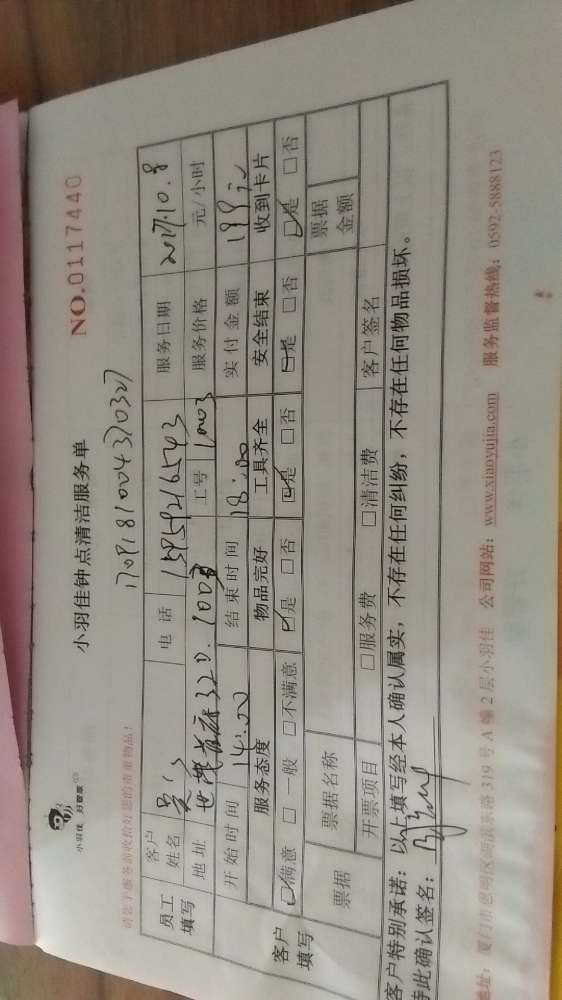 小羽佳 好管家
小羽佳钟点清洁服务单
NO.0117440
请您于服务前收拾好您的贵重物品!
170918100437032
员工填写 客户姓名 电话 服务日期 2017.10.8
地址 320. 工号 服务价格 元/小时
开始时间 14:00 结束时间 18:00 实付金额 199元
客户填写 服务态度 物品完好 工具齐全 安全结束 收到卡片
☑满意 □一般 □不满意 ☑是 □否 ☑是 □否 ☑是 □否 ☑是 □否
票据 票据名称 票据金额
开票项目 □服务费 □清洁费 客户签名
客户特别承诺:以上填写经本人确认属实,不存在任何纠纷,不存在任何物品损坏。
特此确认签名:
地址:厦门市思明区湖滨东路319号A幢2层小羽佳 公司网站:www.xiaoyujia.com 服务监督热线:0592-5888123